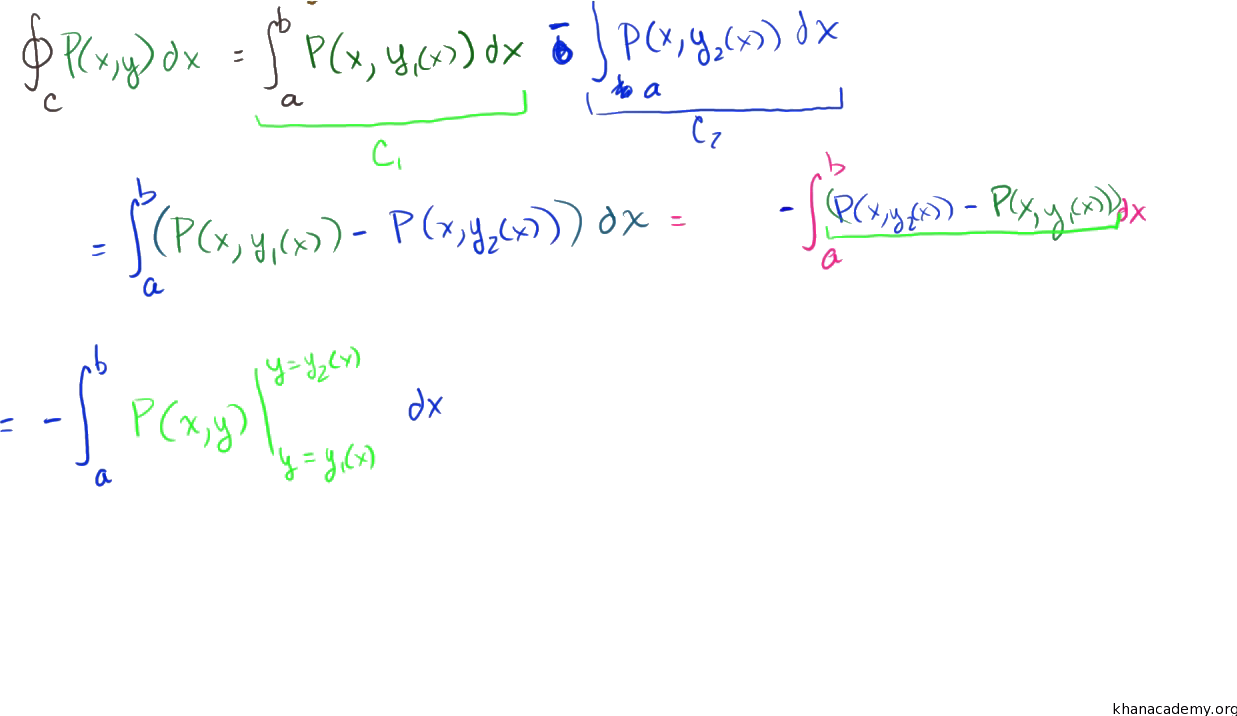 ∮_C P(x,y)dx = ∫_a^b P(x, y₁(x)) dx − ∫_a P(x,y₂(x)) dx
C₁ C₂
= ∫_a^b (P(x, y₁(x)) − P(x,y₂(x))) dx = − ∫_a^b (P(x,y₂(x)) − P(x,y₁(x))) dx
= − ∫_a^b P(x,y) |_{y = y₁(x)}^{y=y₂(x)} dx
khanacademy.org